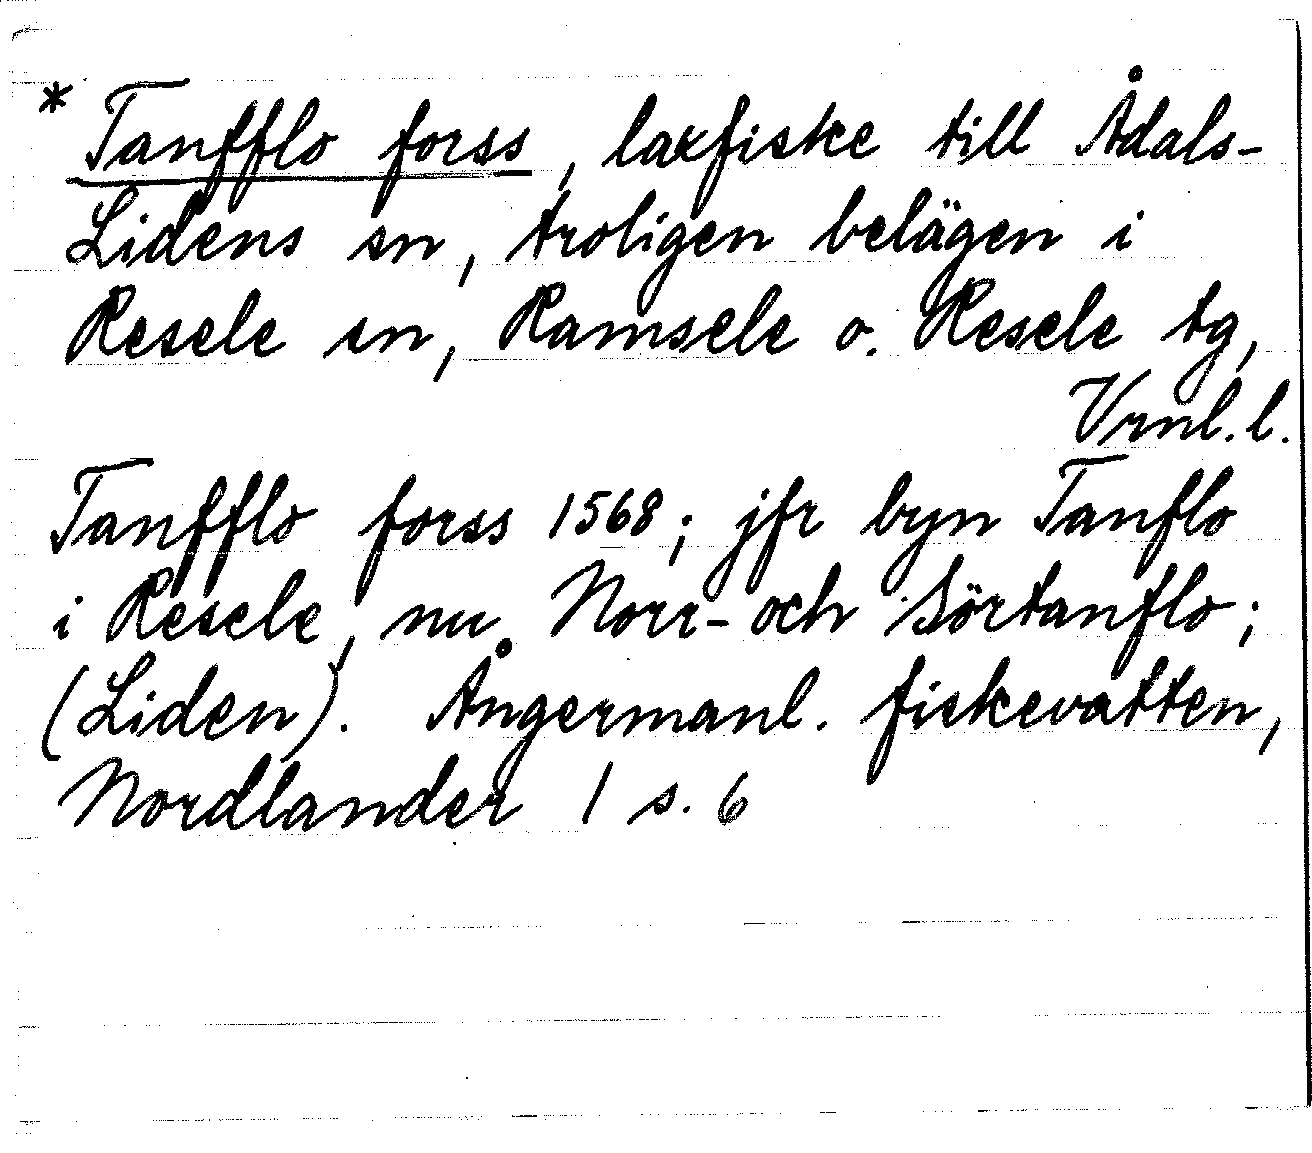 * Tanfflo forss, laxfiske till Ådals-
Lidens sn, troligen belägen i
Resele sn, Ramsele o. Resele tg,
Vrnl. l.
Tanfflo forss 1568; jfr byn Tanflo
i Resele, nu Norr- och Sörtanflo;
(Liden). Ångermanl. fiskevatten,
Nordlander 1 s. 6